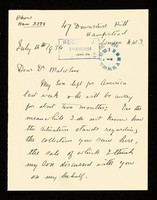 Phone
Ham 2294
47 Downshire Hill
Hampstead
London N.W.3.
July 14th 1934
Dear Dr Malcolm
My Son left for America
last week & he will be away
for about two months. In the
meanwhile I do not know how
the situation stands regarding
the collection you have here,
the sale of which I think
my Son discussed with you
on my behalf.